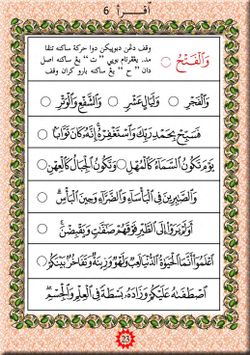 6 أقرأ
وَالْفَتْحُ
وقف دغن دبوپيكن دوا حركة ساكنه تتفا
مد، يعقرتام بوپي " ت " يغ ساكنه اصل
دان " ح " يغ ساكنه بارو كران وقف
وَالْفَجْرِ ○ وَلَيَالٍ عَشْرٍ ○ وَالشَّفْعِ وَالْوَتْرِ ○
فَسَبِّحْ بِحَمْدِ رَبِّكَ وَاسْتَغْفِرْهُ إِنَّهُ كَانَ تَوَّابًا ○
يَوْمَ تَكُونُ السَّمَاءُ كَالْمُهْلِ ○ وَتَكُونُ الْجِبَالُ كَالْعِهْنِ ○
وَالصَّابِرِينَ فِي الْبَأْسَاءِ وَالضَّرَّاءِ وَحِينَ الْبَأْسِ ○
أَوَلَمْ يَرَوْا إِلَى الطَّيْرِ فَوْقَهُمْ صَافَّاتٍ وَيَقْبِضْنَ ○
اعْلَمُوا أَنَّمَا الْحَيَاةُ الدُّنْيَا لَعِبٌ وَلَهْوٌ وَزِينَةٌ وَتَفَاخُرٌ بَيْنَكُمْ ○
اصْطَفَاهُ عَلَيْكُمْ وَزَادَهُ بَسْطَةً فِي الْعِلْمِ وَالْجِسْمِ ○
23